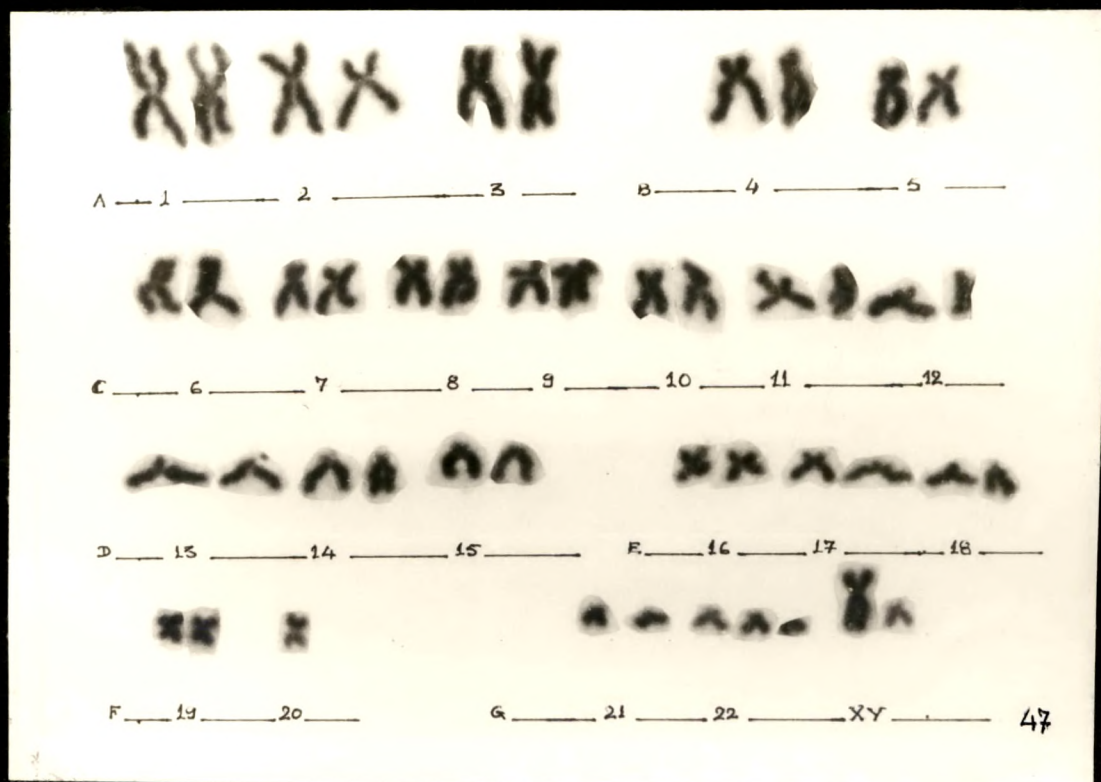 A 1 2 3 B 4 5
C 6 7 8 9 10 11 12
D 13 14 15 E 16 17 18
F 19 20 G 21 22 XY 47